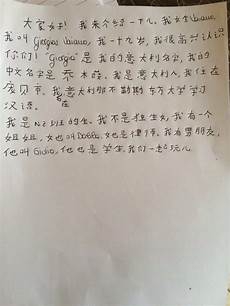 大家好！我来介绍一下儿，我姓Viviano，
我叫Giorgia Viviano，我十九岁，我很高兴认识
你们！"Giorgia"是我的意大利名字，我的
中文名字是乔木莎。我是意大利人，我住在
庞贝市，我在意大利那不勒斯东方大学学习
汉语。
我是N2班的学生。我不是独生女，我有一个
姐姐，女也叫，女也是律师。我有男朋友，
他叫Giulio，他也是学生，我们一起玩儿